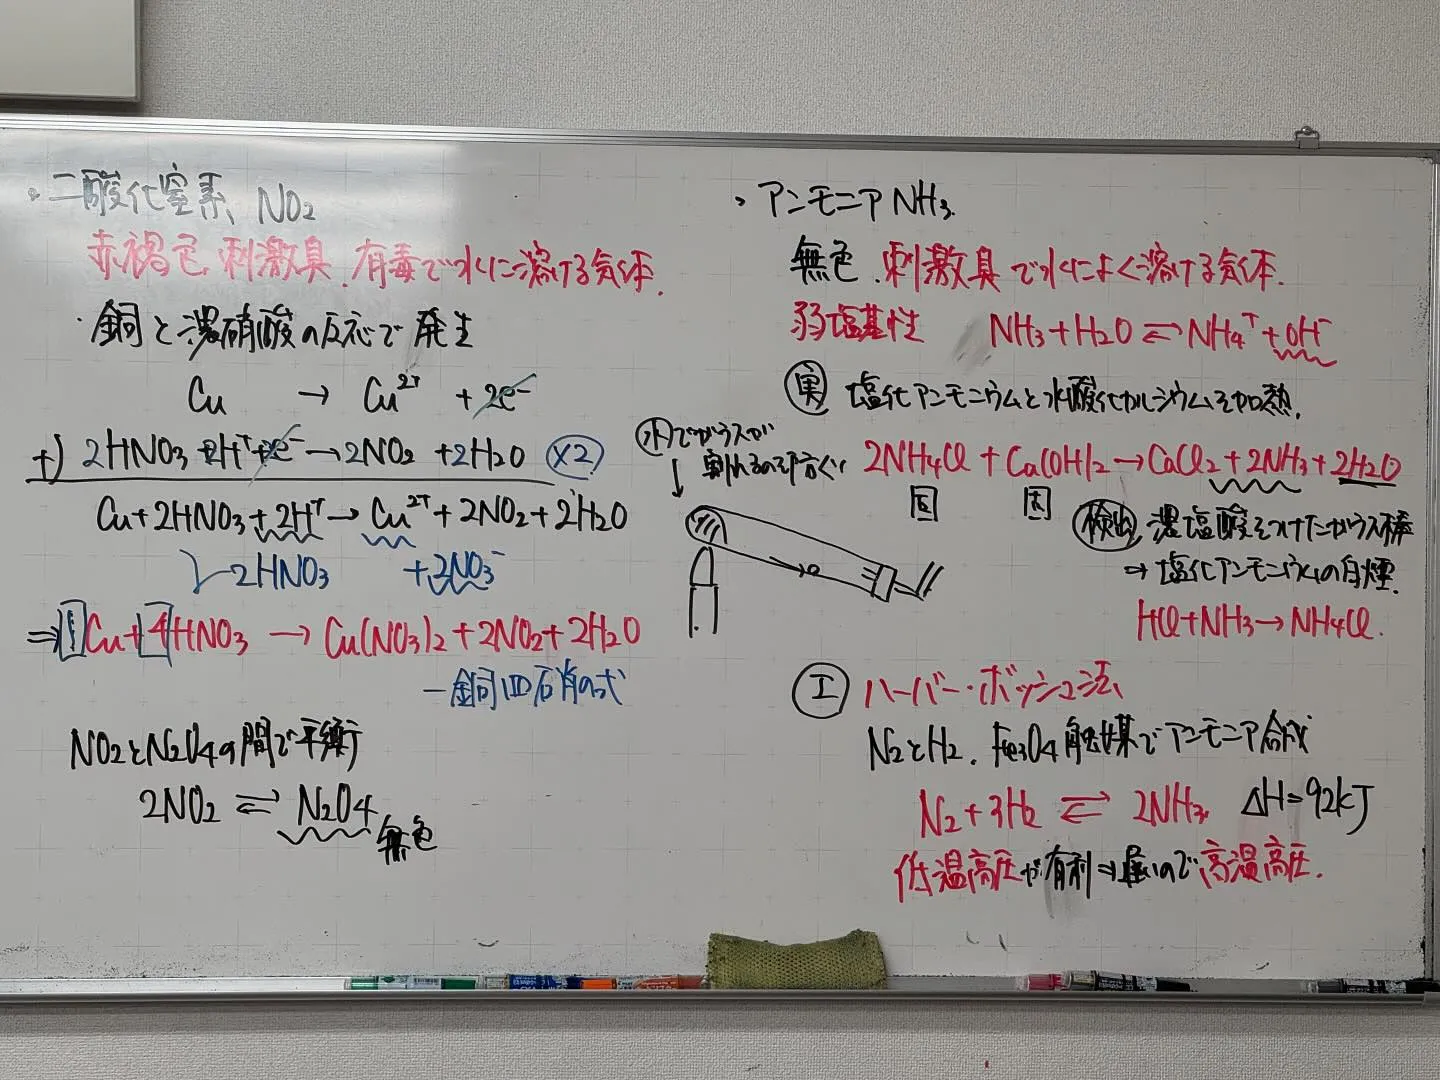 ・二酸化窒素 NO2
赤褐色、刺激臭、有毒で水に溶ける気体.
・銅と濃硝酸の反応で発生
Cu → Cu2+ + 2e-
+) 2HNO3 + 2H+ + e- → 2NO2 + 2H2O (×2)
Cu + 2HNO3 + 2H+ → Cu2+ + 2NO2 + 2H2O
2HNO3 + 2NO3-
⇒ 1Cu + 4HNO3 → Cu(NO3)2 + 2NO2 + 2H2O
一銅四硝の式
NO2とN2O4の間で平衡
2NO2 ⇄ N2O4
無色
・アンモニア NH3.
無色.刺激臭で水によく溶ける気体.
弱塩基性 NH3 + H2O ⇄ NH4+ + OH-
実 塩化アンモニウムと水酸化カルシウムを加熱.
水でガラスが
割れるの防ぐ
2NH4Cl + Ca(OH)2 → CaCl2 + 2NH3 + 2H2O
固 固
検出 濃塩酸をつけたガラス棒
→ 塩化アンモニウムの白煙.
HCl + NH3 → NH4Cl.
工 ハーバー・ボッシュ法
N2とH2. Fe3O4触媒でアンモニア合成
N2 + 3H2 ⇄ 2NH3 ΔH=92kJ
低温高圧が有利⇒遅いので高温高圧.